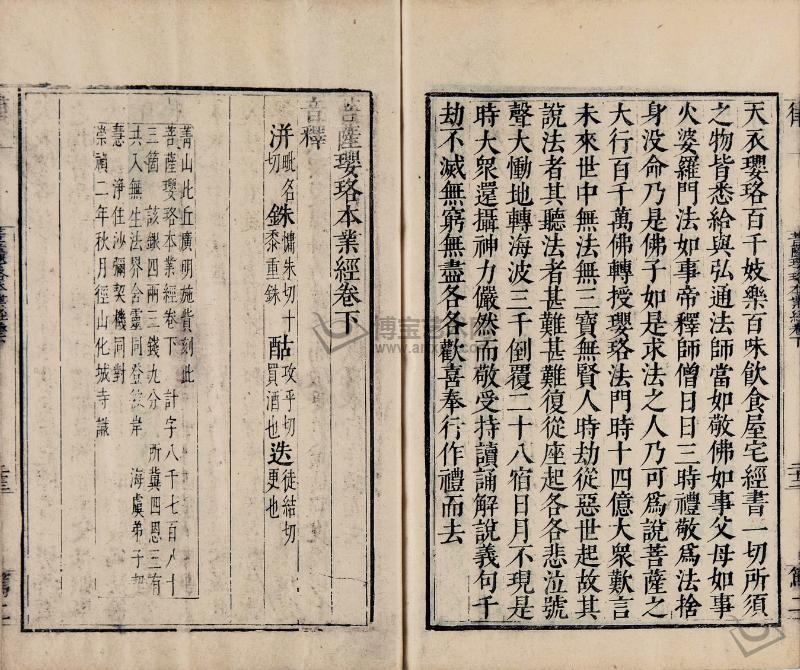 天衣瓔珞百千妓樂百味飲食屋宅經書一切所須
之物皆悉給與弘通法師當如敬佛如事父母如事
火婆羅門法如事帝釋師僧日日三時禮敬為法捨
身没命乃是佛子如是求法之人乃可為說菩薩之
大行百千萬佛轉授瓔珞法門時十四億大衆歎言
未來世中無法無三寶無賢人時劫從惡世起故其
說法者其聽法者甚難甚難復從座起各各悲泣號
聲大慟地轉海波三千倒覆二十八宿日月不現是
時大衆還攝神力儼然而敬受持讀誦解說義句千
劫不滅無窮無盡各各歡喜奉行作禮而去
菩薩瓔珞本業經卷下
音釋
洴毗名切 銖慵朱切十黍重銖 酤攻乎切買酒也 迭徒結切更也
菁山比丘廣明施貲刻此
菩薩瓔珞本業經卷下 計字八千七百八十
三箇 該銀四兩三錢九分 所冀四恩三有
共入無生法界含靈同登彼岸 海虞弟子
慧 淨住沙彌契機同對
崇禎二年秋月徑山化城寺識
博宝艺术网